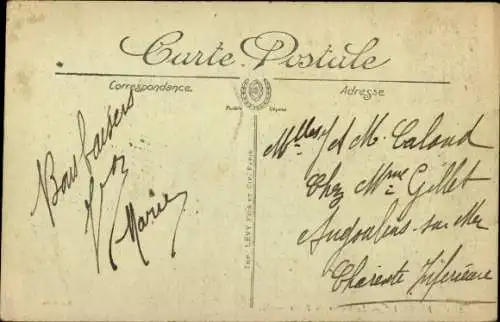 Carte Postale
Correspondance
Adresse
Bons baisers
Marie
Mlles J et M. Caloud
Chez Mme Gillet
Angoulins-sur-Mer
Charente Inférieure
IMP. LÉVY FILS ET CIE, PARIS